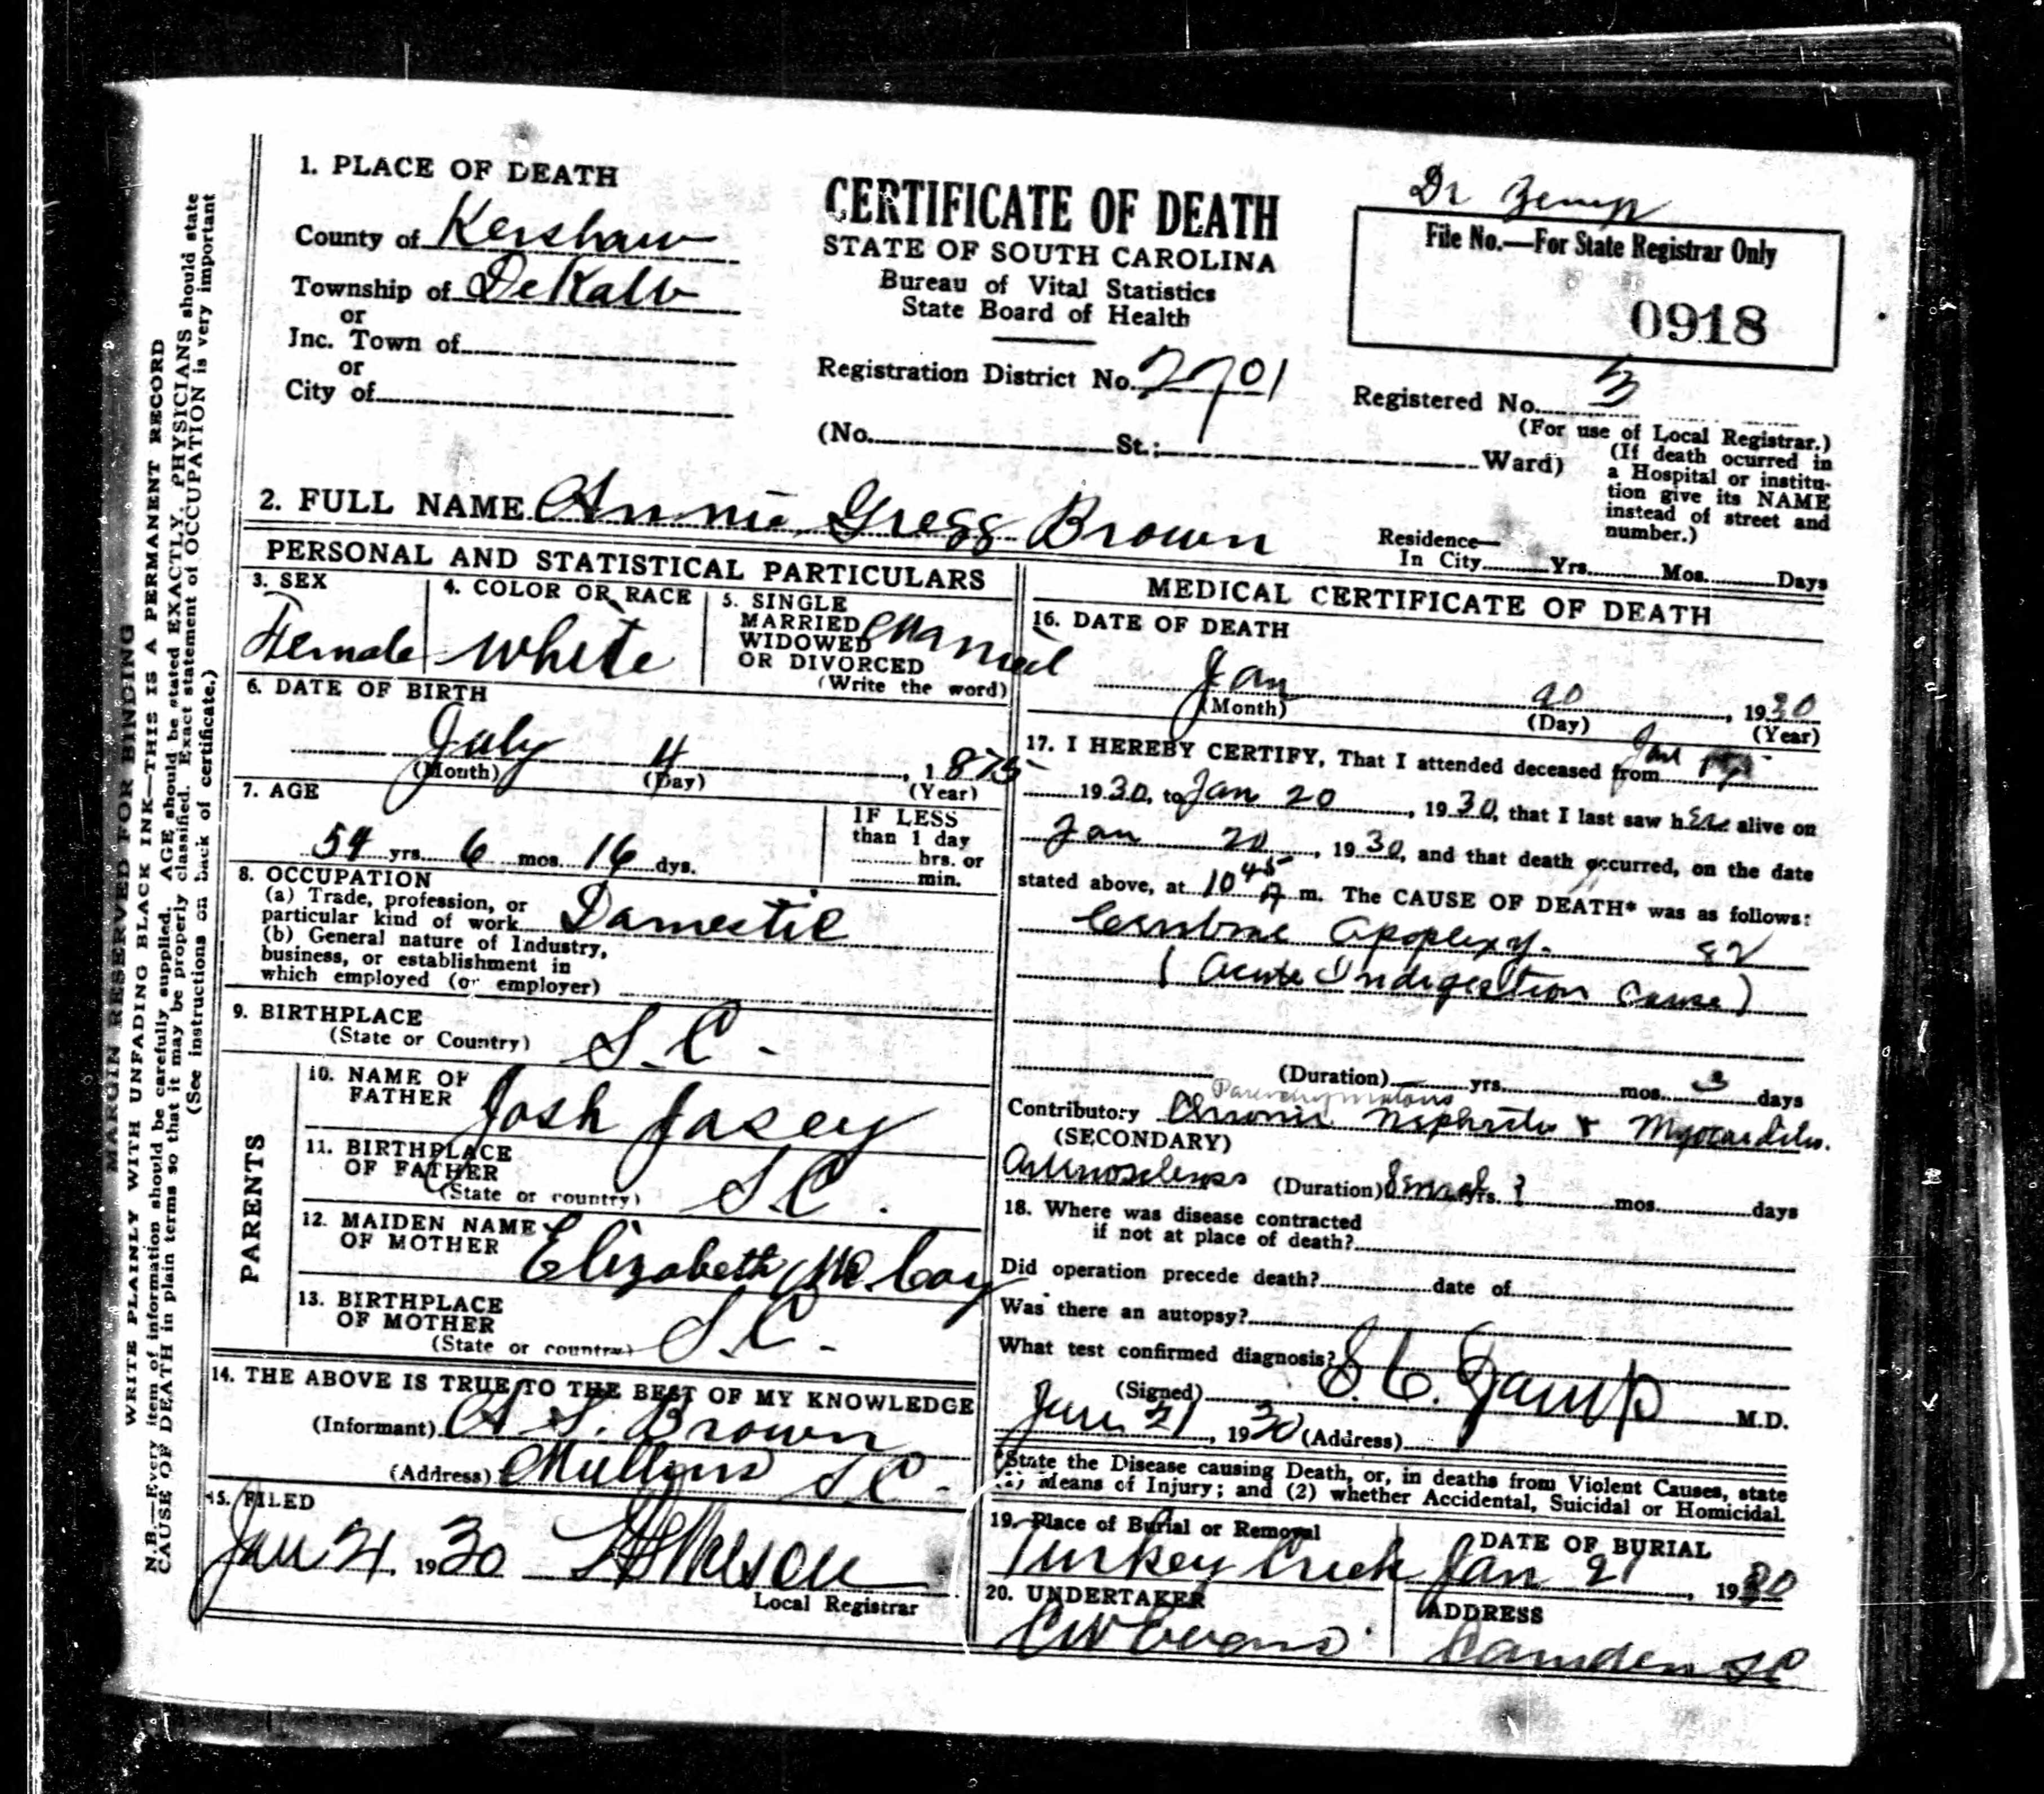 Dr Zemp
1. PLACE OF DEATH
County of Kershaw
Township of DeKalb
or
Inc. Town of
or
City of
CERTIFICATE OF DEATH
STATE OF SOUTH CAROLINA
Bureau of Vital Statistics
State Board of Health
Registration District No. 2701
(No. St.; Ward)
File No.—For State Registrar Only
0918
Registered No. 3
(For use of Local Registrar.)
(If death ocurred in
a Hospital or institu-
tion give its NAME
instead of street and
number.)
2. FULL NAME Annie Gregg Brown
Residence—
In City Yrs. Mos. Days
PERSONAL AND STATISTICAL PARTICULARS
3. SEX
Female
4. COLOR OR RACE
White
5. SINGLE
MARRIED
WIDOWED
OR DIVORCED
(Write the word)
Married
6. DATE OF BIRTH
July 4, 1875
(Month) (Day) (Year)
7. AGE
54 yrs. 6 mos. 16 dys.
IF LESS
than 1 day
hrs. or
min.
8. OCCUPATION
(a) Trade, profession, or
particular kind of work Domestic
(b) General nature of Industry,
business, or establishment in
which employed (or employer)
9. BIRTHPLACE
(State or Country) S.C.
PARENTS
10. NAME OF
FATHER Josh Jasey
11. BIRTHPLACE
OF FATHER
(State or country) S.C.
12. MAIDEN NAME
OF MOTHER Elizabeth McCoy
13. BIRTHPLACE
OF MOTHER
(State or country) S.C.
14. THE ABOVE IS TRUE TO THE BEST OF MY KNOWLEDGE
(Informant) A S. Brown
(Address) Mullins S C.
15. FILED
Jan 21, 1930
Local Registrar
MEDICAL CERTIFICATE OF DEATH
16. DATE OF DEATH
Jan 20, 1930
(Month) (Day) (Year)
17. I HEREBY CERTIFY, That I attended deceased from Jan
1930, to Jan 20, 1930, that I last saw her alive on
Jan 20, 1930, and that death occurred, on the date
stated above, at 10 45 A m. The CAUSE OF DEATH* was as follows:
Apoplexy. 82
(Acute Indigestion Cause)
(Duration) yrs. mos. 3 days
Parenchymatous
Contributory Chronic Nephritis + Myocarditis.
(SECONDARY)
Arteriosclerosis (Duration) Several yrs. ? mos. days
18. Where was disease contracted
if not at place of death?
Did operation precede death? date of
Was there an autopsy?
What test confirmed diagnosis?
(Signed) S. C. Zemp M.D.
Jan 21, 1930 (Address)
*State the Disease causing Death, or, in deaths from Violent Causes, state
(1) Means of Injury; and (2) whether Accidental, Suicidal or Homicidal.
19. Place of Burial or Removal
Turkey Creek
DATE OF BURIAL
Jan 21, 1930
20. UNDERTAKER
C W Evans
ADDRESS
Camden SC
MARGIN RESERVED FOR BINDING
WRITE PLAINLY WITH UNFADING BLACK INK—THIS IS A PERMANENT RECORD
N.B.—Every item of information should be carefully supplied. AGE should be stated EXACTLY. PHYSICIANS should state
CAUSE OF DEATH in plain terms so that it may be properly classified. Exact statement of OCCUPATION is very important
(See instructions on back of certificate.)